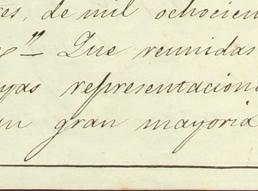 res, de mil ochocien
Que reunidas
yas representacione
un gran mayoria